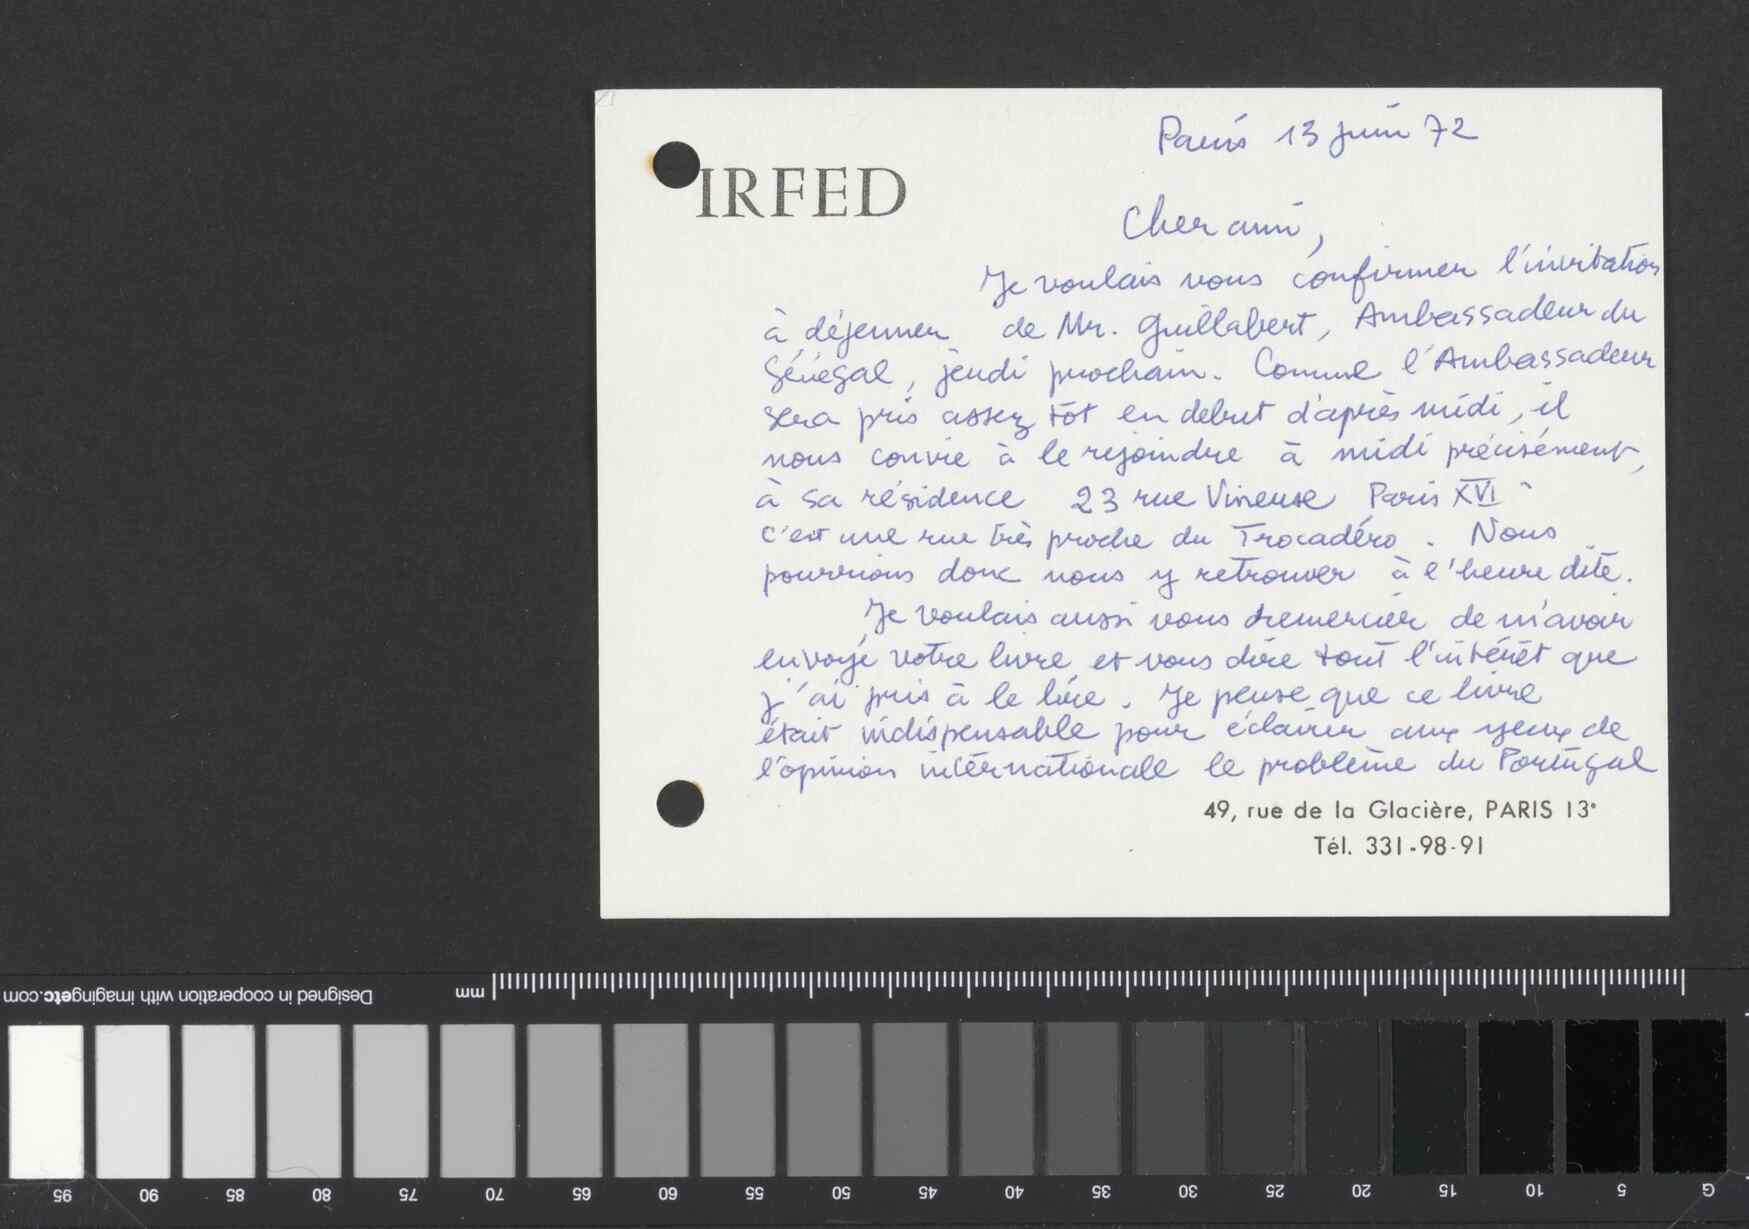 Paris 13 juin 72
IRFED
Cher ami,
Je voulais vous confirmer l'invitation
à déjeuner de Mr. Guillabert, Ambassadeur du
Sénégal, jeudi prochain. Comme l'Ambassadeur
sera pris assez tôt en debut d'après midi, il
nous convie à le rejoindre à midi précisément,
à sa résidence 23 rue Vineuse Paris XVI
c'est une rue très proche du Trocadéro. Nous
pourrions donc nous y retrouver à l'heure dite.
Je voulais aussi vous remercier de m'avoir
envoyé votre livre et vous dire tout l'intérêt que
j'ai pris à le lire. Je pense que ce livre
était indispensable pour éclairer aux yeux de
l'opinion internationale le problème du Portugal
49, rue de la Glacière, PARIS 13e
Tél. 331-98-91
mm
Designed in cooperation with imagingetc.com
95 90 85 80 75 70 65 60 55 50 45 40 35 30 25 20 15 10 5 G